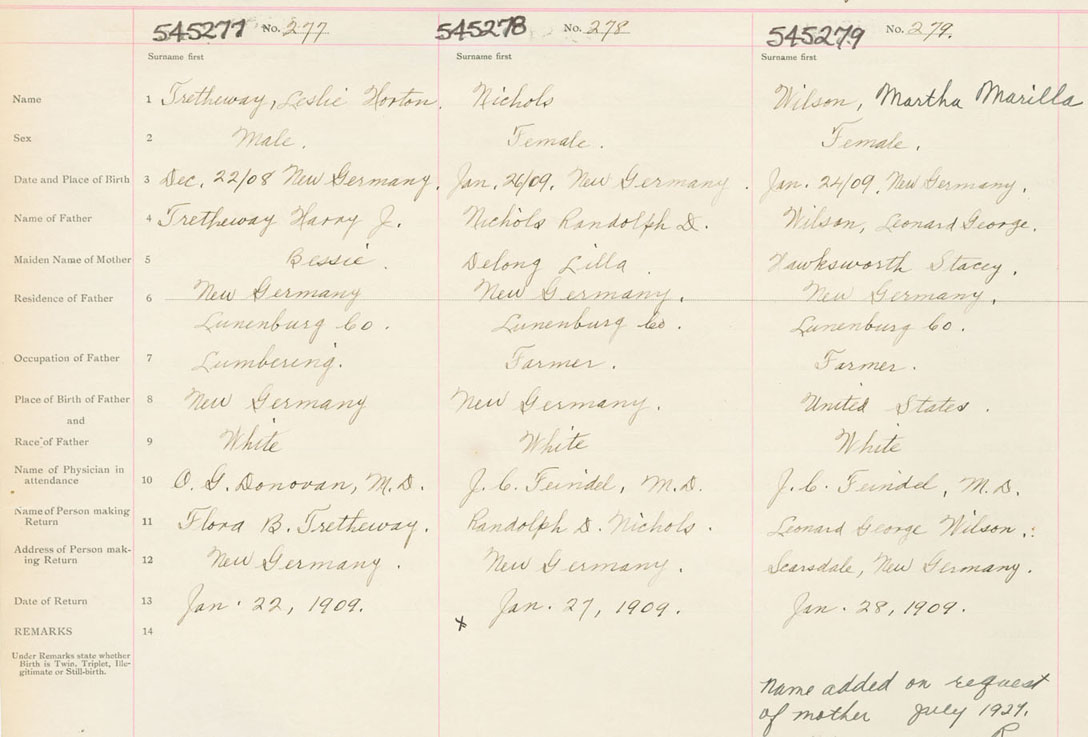 545277 No. 277 545278 No. 278 545279 No. 279.
Surname first Surname first Surname first
Name 1 Tretheway, Leslie Horton. Nichols Wilson, Martha Marilla
Sex 2 Male. Female. Female.
Date and Place of Birth 3 Dec. 22/08 New Germany. Jan. 26/09. New Germany. Jan. 24/09. New Germany.
Name of Father 4 Tretheway Harry J. Nichols Randolph D. Wilson, Leonard George.
Maiden Name of Mother 5 Bessie. Delong Lilla. Hawksworth Stacey.
Residence of Father 6 New Germany New Germany. New Germany.
Lunenburg Co. Lunenburg Co. Lunenburg Co.
Occupation of Father 7 Lumbering. Farmer. Farmer.
Place of Birth of Father 8 New Germany New Germany. United States.
and
Race of Father 9 White White White
Name of Physician in
attendance 10 O. G. Donovan, M.D. J. C. Feindel, M.D. J. C. Feindel, M.D.
Name of Person making
Return 11 Flora B. Tretheway. Randolph D. Nichols. Leonard George Wilson.
Address of Person mak-
ing Return 12 New Germany. New Germany. Scarsdale, New Germany.
Date of Return 13 Jan. 22, 1909. Jan. 27, 1909. Jan. 28, 1909.
REMARKS 14 x
Under Remarks state whether
Birth is Twin, Triplet, Ille-
gitimate or Still-birth.
Name added on request
of mother July 1927.